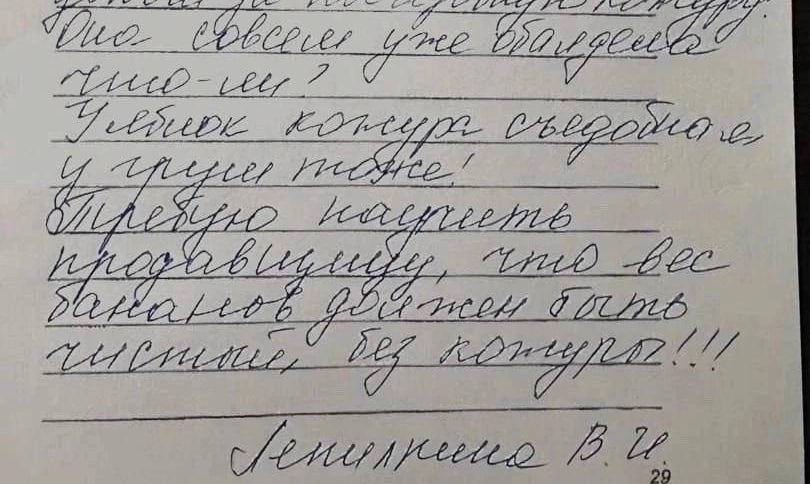 за несъедобную кожуру.
Она совсем уже обалдела
что-ли?
У яблок кожура съедобная
у груш тоже!
Требую научить
продавщицу, что вес
бананов должен быть
чистый, без кожуры!!!
В. И.
29